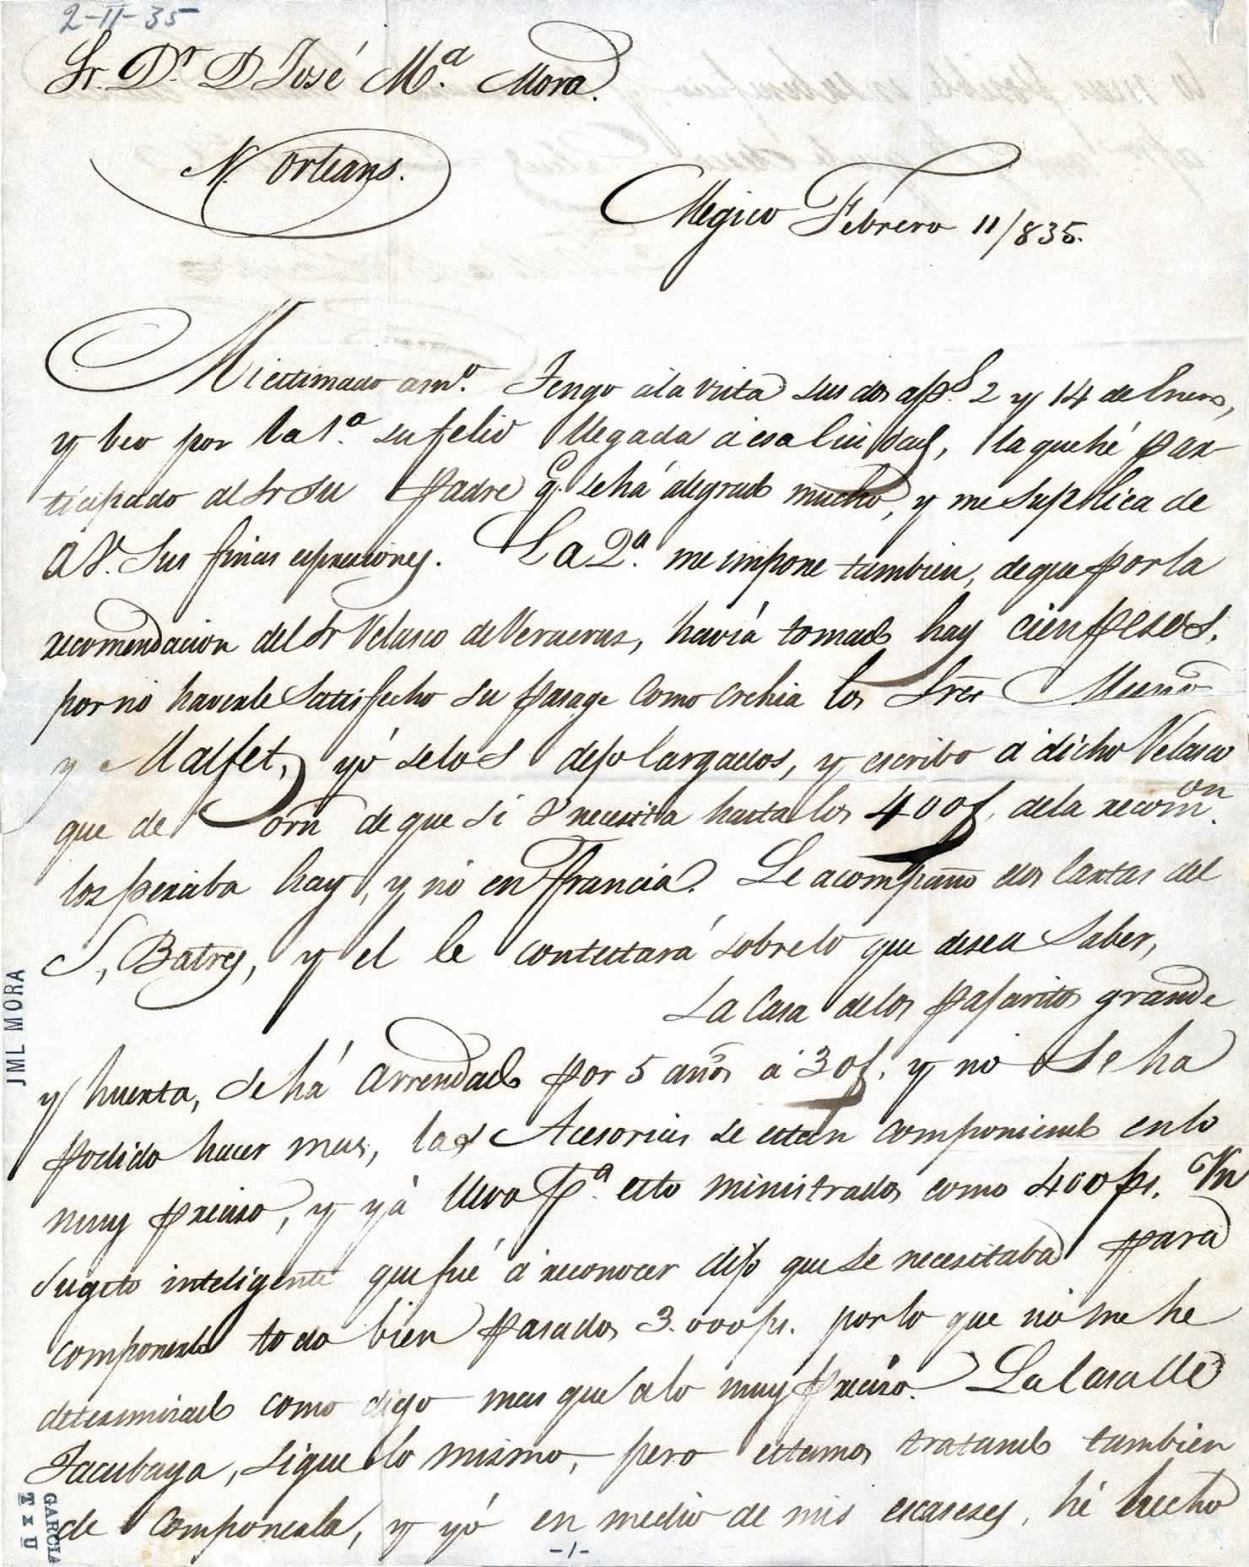 2-II-35
Sr. Dr. D José Ma. Mora.
N. Orleans.
Megico Febrero 11/835.
Mi estimado amo. Tengo á la vista sus dos aps. 2 y 14 de Enero,
y veo por la 1.a su feliz llegada á esa Ciudad, la que hé par-
ticipado al Sr su Padre q. se há alegrado mucho, y me suplica de
á V. sus finas espreciones. La 2a. me impone tambien, de que por la
recomendacion del Sr Velasco de Veracruz, havia tomado hay cien pesos,
por no haverle satisfecho su pasage como crehia los Sres
y Malfet, yó se los dejo cargados, y escribo á dicho Velasco
que dé orn de que si V necesita hasta los 400 p. de la recomon.
los perciba hay, y no en Francia. Le acompaño dos Cartas del
S, Batres, y el le contestará sobre lo que desea saber,
La Casa de los Pajaritos grande
y huerta, se há Arrendado por 5 años á 30 p. y no se ha
podido hacer mas, las Acesorias se estan componiendo en lo
muy preciso, y yá llevo Pa. esto ministrados como 400 ps. Un
sugeto inteligente que fué á reconocer dijo que se necesitaba para
componerlo todo bien pasados 3.000 ps. por lo que no me he
determinado como digo mas que á lo muy preciso. La Casa de
Tacubaya, sigue lo mismo, pero estamos tratando tambien
de componerla, y yó en medio de mis escaseses, hé hecho
-1-
JML MORA
GARCIA
T x U